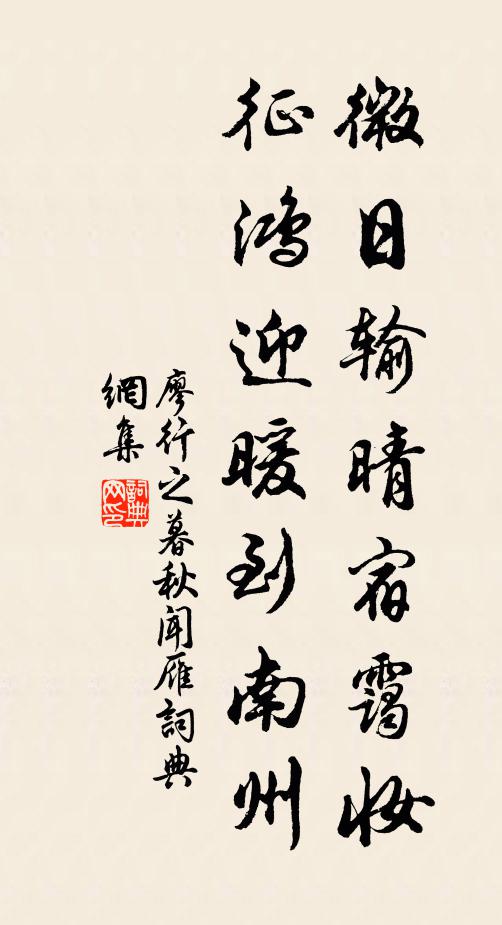 微日输晴宿霭收
征鸿迎暖到南州
廖行之暮秋闻雁詞典
網集
詞典
网印